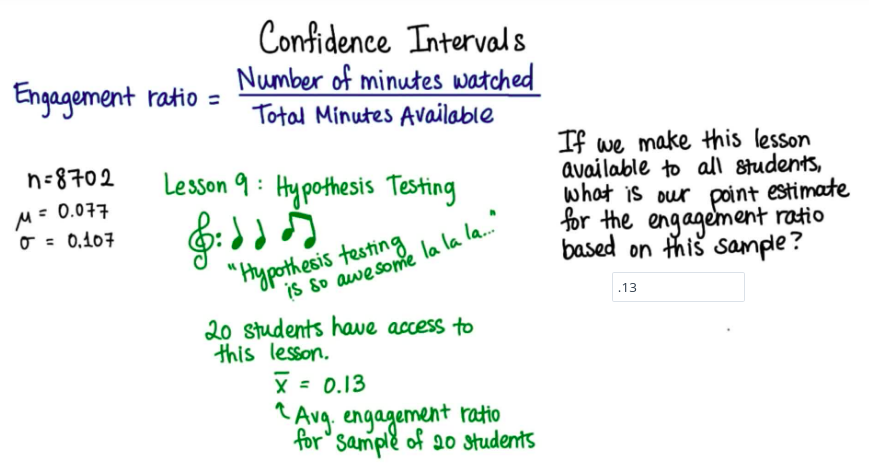 Confidence Intervals
Engagement ratio = Number of minutes watched
Total Minutes Available
n=8702
μ = 0.077
σ = 0.107
Lesson 9 : Hypothesis Testing
"Hypothesis testing
is so awesome la la la..."
20 students have access to
this lesson.
x̄ = 0.13
↑ Avg. engagement ratio
for sample of 20 students
If we make this lesson
available to all students,
what is our point estimate
for the engagement ratio
based on this sample?
.13